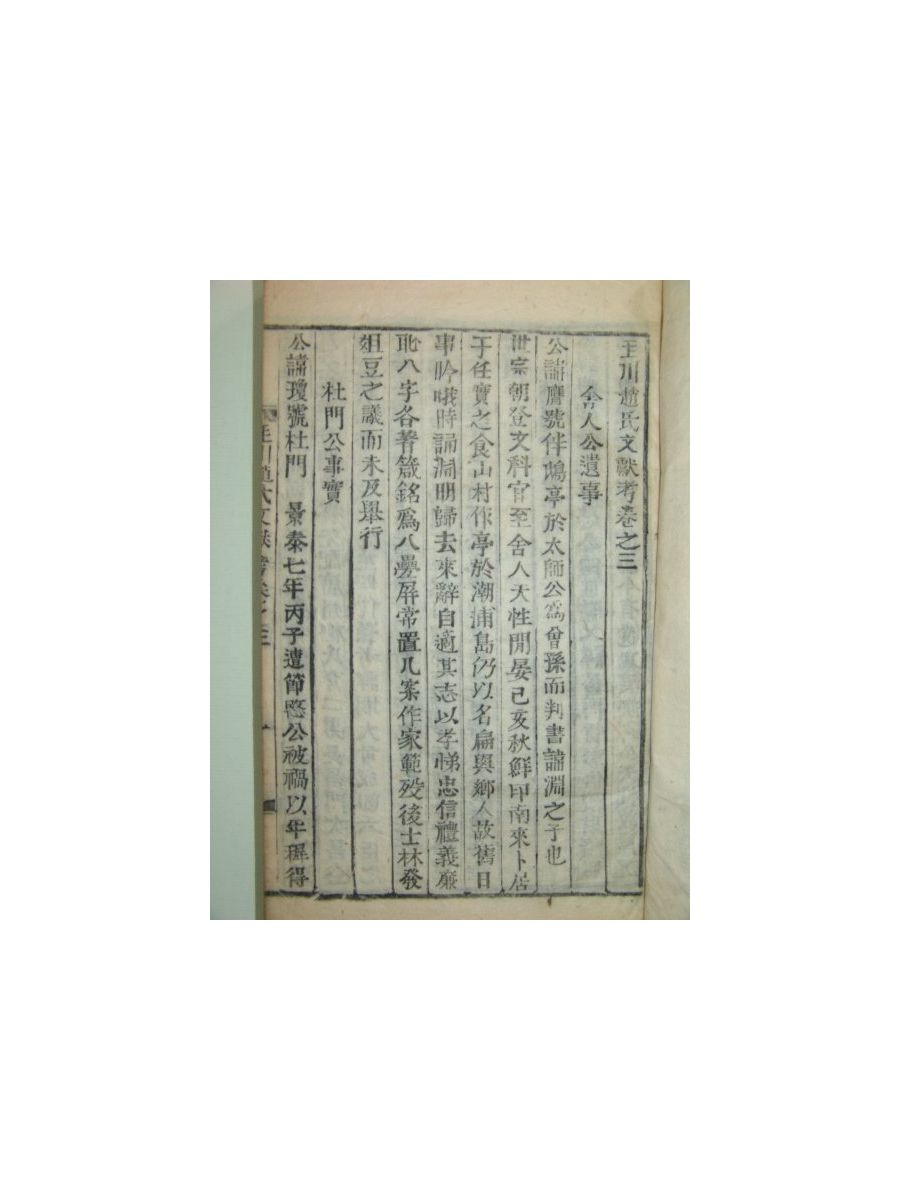 玉川趙氏文獻考卷之三
舍人公遺事
公諱膺號伴鷗亭於太師公爲曾孫而判書諱淵之子也
世宗朝登文科官至舍人天性閒晏己亥秋鮮印南來卜居
于任實之食山村作亭於潮浦島仍以名扁與鄉人故舊日
事吟哦時誦淵明歸去來辭自適其志以孝悌忠信禮義廉
耻八字各著箴銘爲八疊屛常置几案作家範歿後士林發
俎豆之議而未及舉行
杜門公事實
公諱瓊號杜門 景泰七年丙子遭節愍公被禍以年穉得
玉川趙氏文獻考卷之三 一